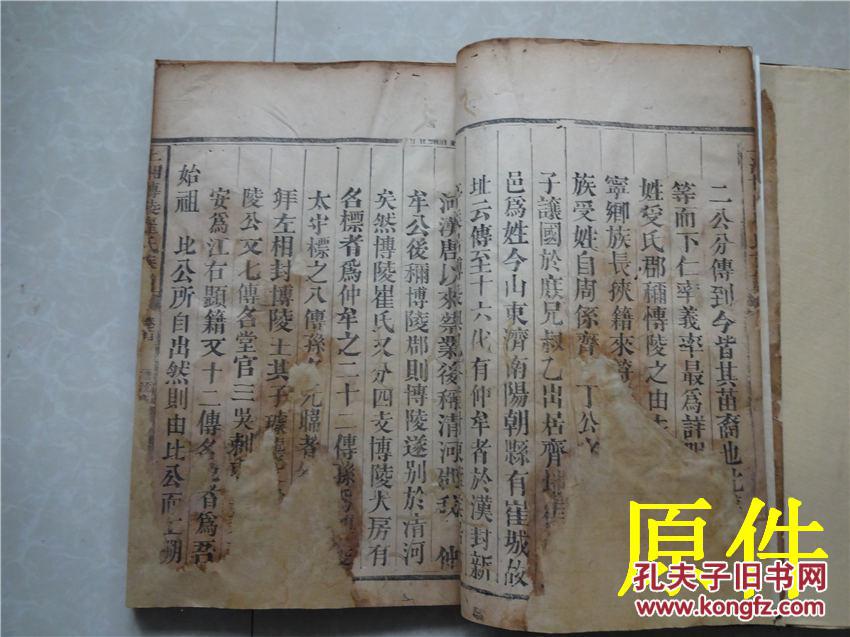 二公分傳到今皆其苗裔也
等而下仁率義率最為詳
姓受氏郡禰博陵之由
寧鄉族長挾籍來
族受姓自周係齊 丁公
子讓國於庶兄叔乙出居齊
邑爲姓今山東濟南陽朝縣有崔城故
址云傳至十六代有仲牟者於漢封新
河漢唐以來榮業後稱清河 仲
牟公後禰博陵郡則博陵遂別於清河
矣然博陵崔氏又分四支博陵大房有
名標者爲仲牟之二十二傳孫
太守標之八傳孫 元暐者
拜左相封博陵王其子璩
陵公又七傳名堂官三吳刺
安爲江右顯籍又十二傳名 者爲吾
始祖 比公所自出然則由比公而上朔
原件
孔夫子旧书网
www.kongfz.com